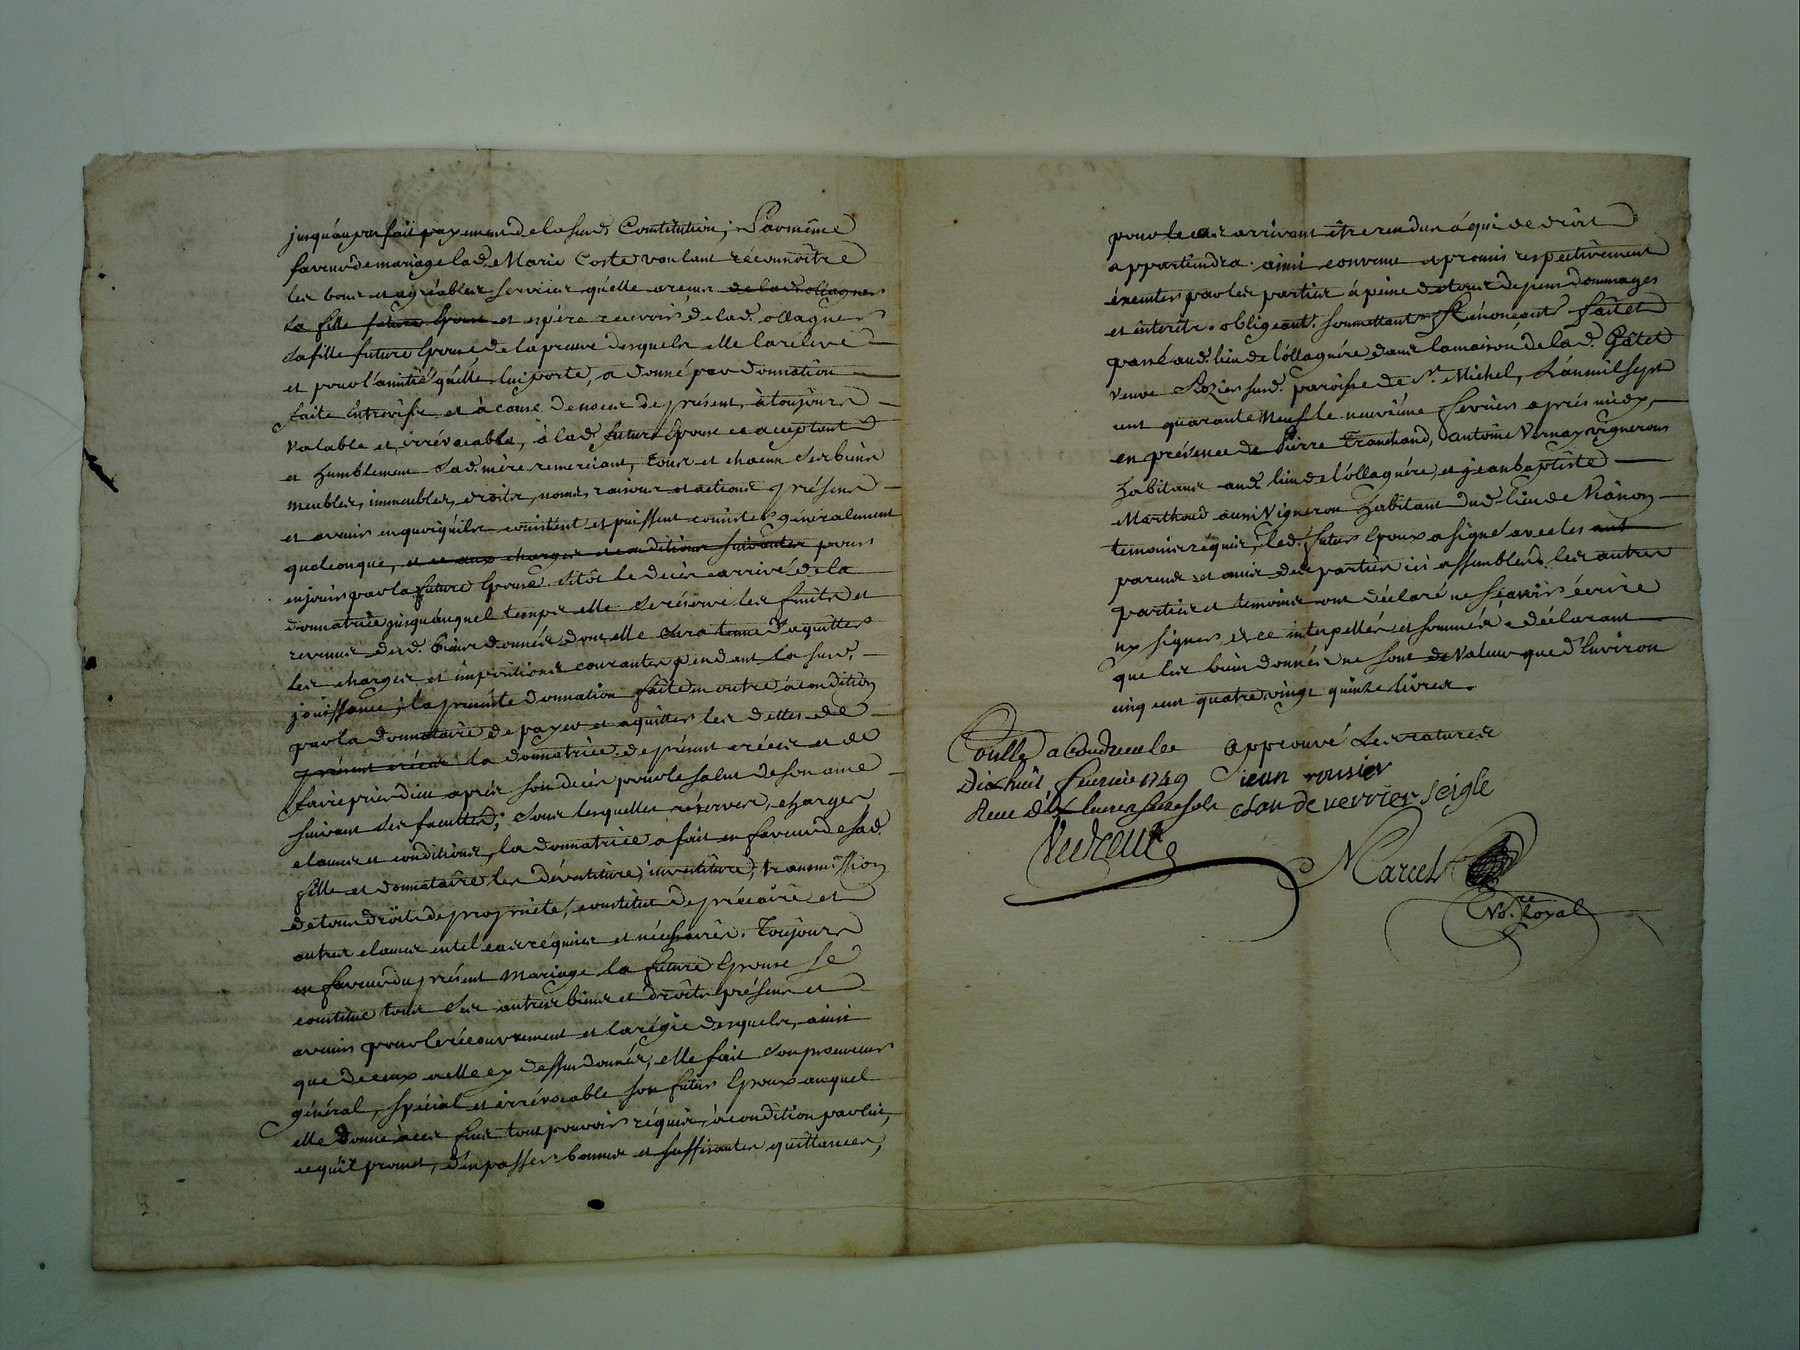 jusqu'au parfait payement de la susd. Constitution; Par même
faveur de mariage lad. Marie Coste voulant réconnoître
les bons et agréables services qu'elle a recus de lad. ollagner
sa fille future Epouse et espére recevoir de lad. ollagner
sa fille future Epouse de la preuve desquels elle la releve
et pour l'amitié qu'elle lui porte, a donné par donnation
faite entrevifs et à cause de noces de présent, à toujours
valable et irrévocable, à lad. future Epouse ce aceptant
et humblement sad. mère remerciant, tous et chacun ses biens
meubles, immeubles, droits, noms, raisons et actions présens
et avenir en quoi qu'ils consistent et puissent consister généralement
quelconque, et ce aux charges et conditions suivantes pour
en jouir par la future Epouse sitôt le decès arrivé de la
donnatrice jusqu'auquel temps elle se réserve les fruits et
revenus desd. biens donnés dont elle sera tenue d'aquitter
les charges et impositions courantes pendant la susd.
jouissance; la présente donnation faite en outre à condition
par la donnataire de payer et aquitter les dettes de
présent créées la donnatrice de présent créées et de
faire prier dieu après son decès pour le salut de son ame
suivant ses facultés; sous lesquelles réserves, charges
clauses et conditions, la donnatrice a fait en faveur de sad.
fille et donnataire les dévestiture, investiture, transmission
de tous droits de propriété, constitut de précaire et
autres clauses en tel cas réquises et nécessaires. Toujours
en faveur du présent mariage la future Epouse se
constitue tous ses autres biens et droits présens et
avenir pour le récouvrement et la régie desquels, ainsi
que de ceux a elle cy dessus donnés, elle fait son procureur
général, spécial et irrévocable son futur Epoux auquel
elle donne à ces fins tout pouvoir réquis, à condition par lui,
ce qu'il promet, d'en passer bonnes et suffisantes quittances,
pour le cas arrivant être rendus à qui de droit
appartiendra. ainsi convenu et promis respectivement
éxecuter par les parties à peine de tous depens dommages
et interêts. obligeant. soumettant. Rénonceant. fait et
passé aud. lieu de l'ollagnére dans la maison de lad. Gâtet
veuve Rozier susd. paroisse de St. Michel, L'an mil sept
cent quarante neuf le neuvième fevrier après midy,
en présence de Pierre Tranchand, antoine Vernay vignerons
habitans aud. lieu de l'ollagnére, et jean baptiste
Marthoud aussi Vigneron habitant dud. lieu de
temoins réquis, led. futur Epoux a signé avec les aut
parens et amis des parties ici assemblés les autres
parties et temoins ont déclaré ne sçavoir écrire
ny signer de ce interpellés et sommés, déclarant
que les biens donnés ne sont de valeur que d'Environ
cinq cent quatre vingt quinze livres.
Controllé a Condrieu le approuvé Les ratures
Dix huit fevrier 1749 jean rousier
Receu dix livres seize sols clau de verrier seigle
Marcel
No.re Royal